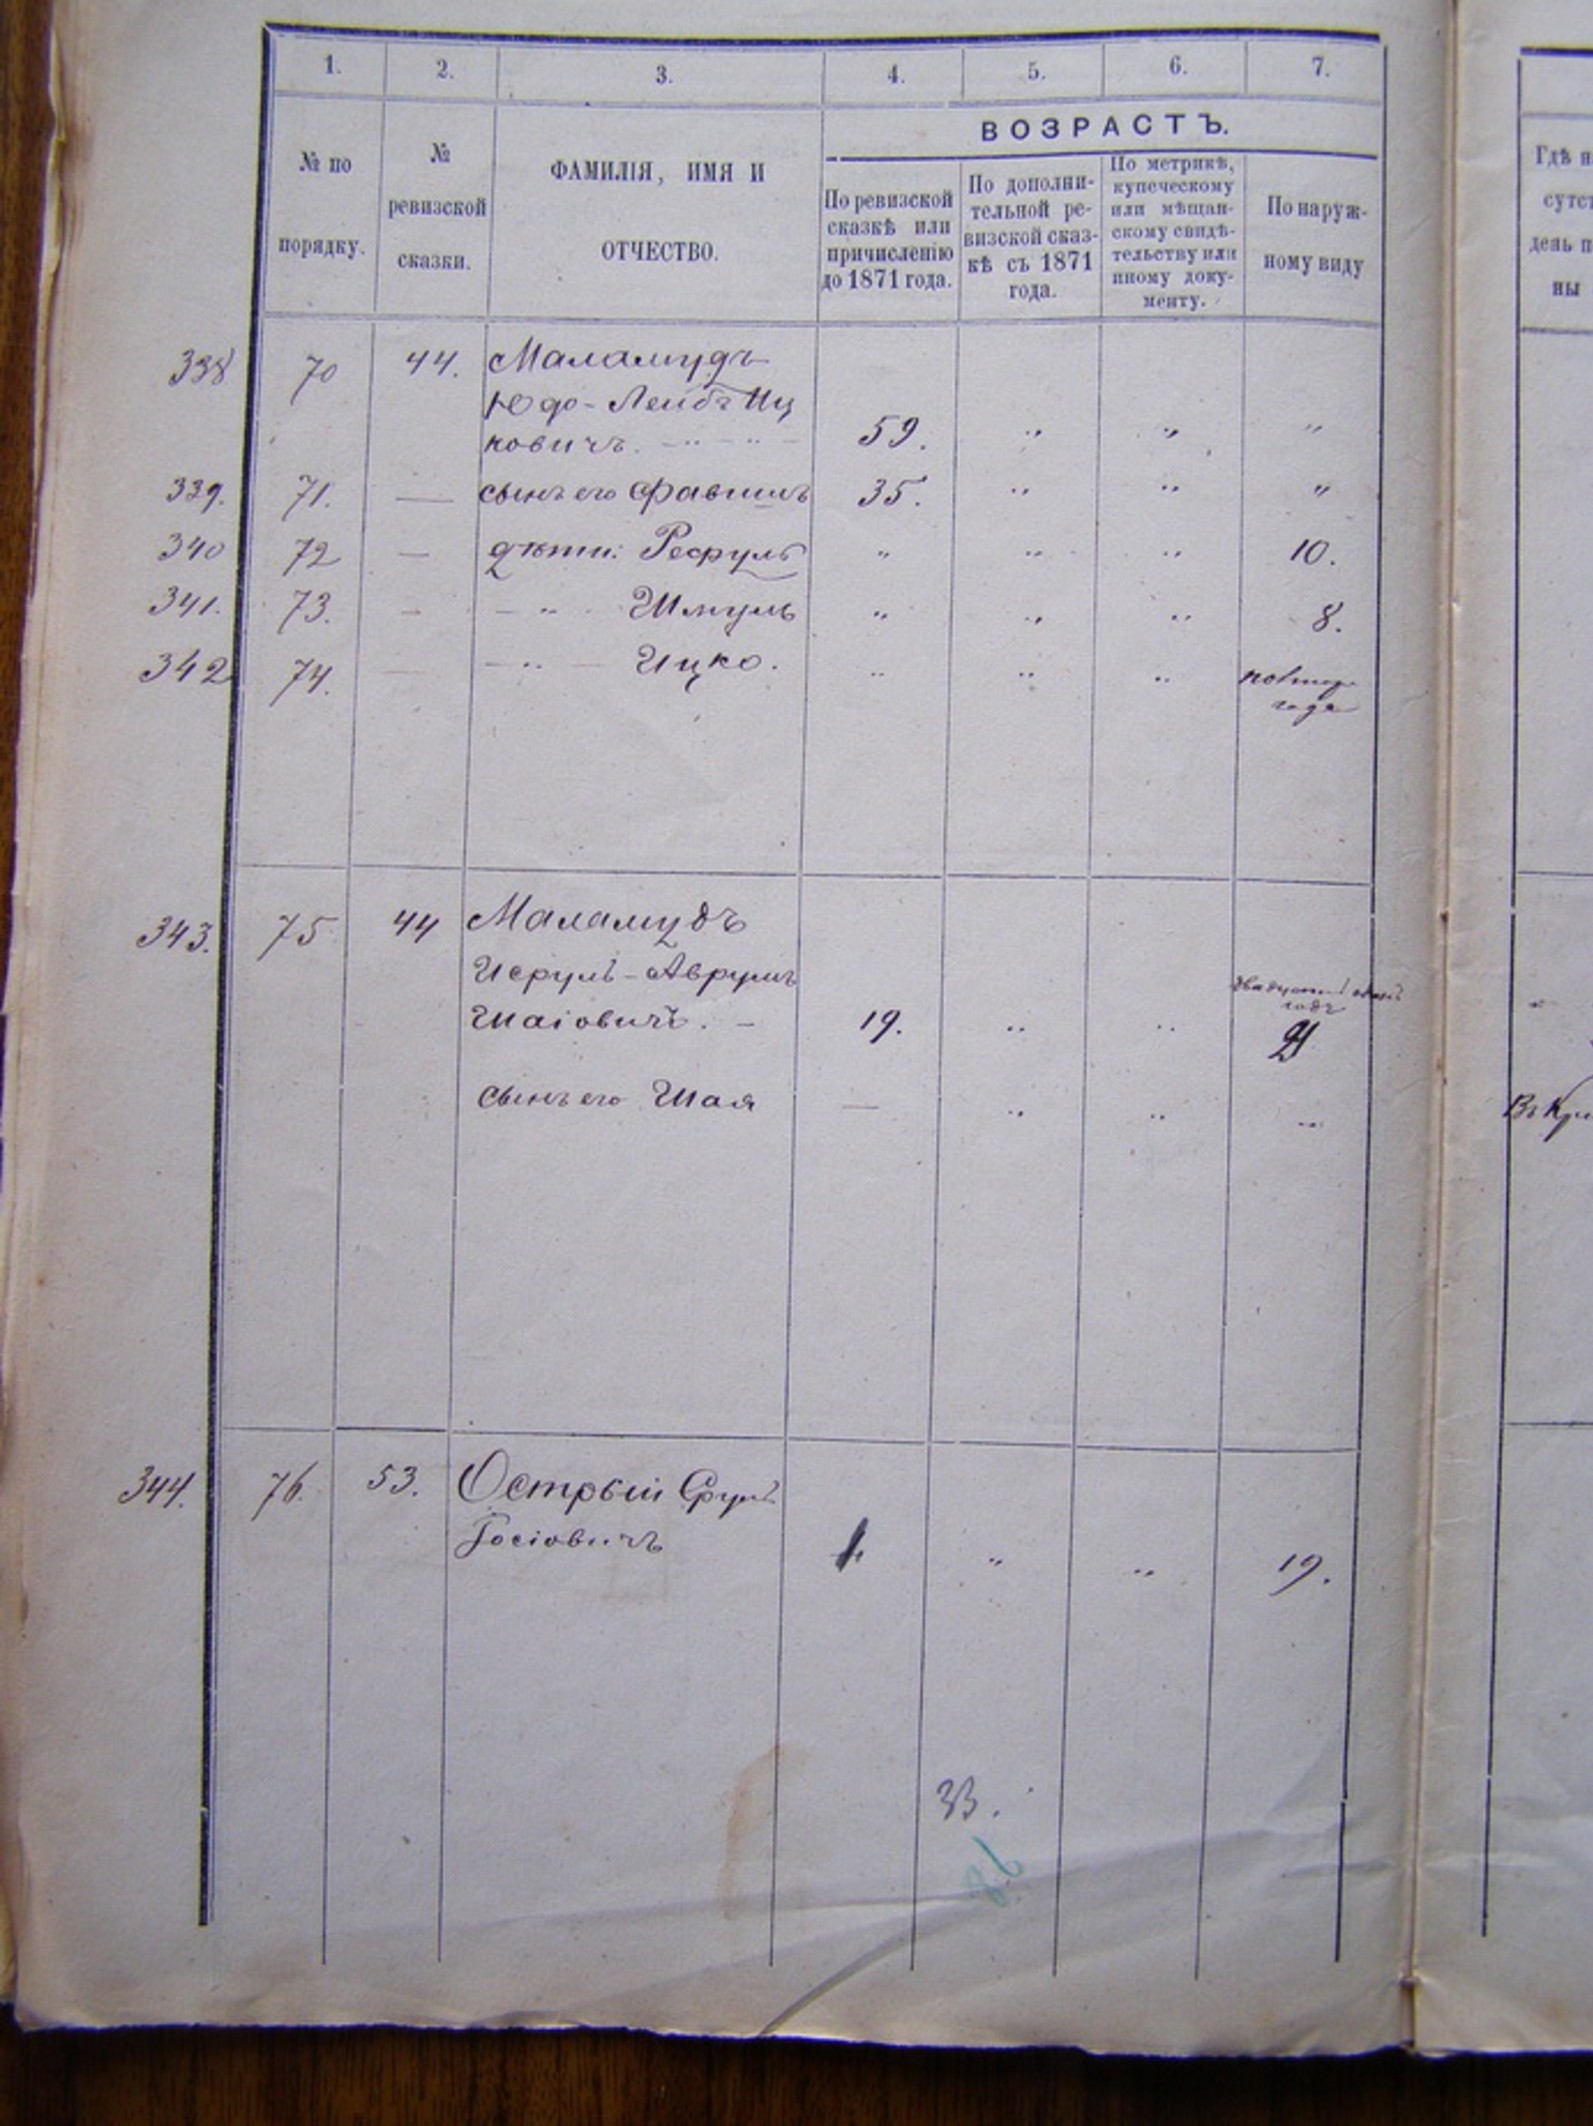 1. 2. 3. 4. 5. 6. 7.
№ по
порядку.
№
ревизской
сказки.
ФАМИЛІЯ, ИМЯ И
ОТЧЕСТВО.
ВОЗРАСТЪ.
По ревизской
сказкѣ или
причисленію
до 1871 года.
По дополни-
тельной ре-
визской сказ-
кѣ съ 1871
года.
По метрикѣ,
купеческому
или мѣщан-
скому свидѣ-
тельству или
иному доку-
менту.
По наруж-
ному виду
338 70 44. Маламудъ
Юдо-Лейбъ Иц
ковичъ. — „ — „ — 59. „ „ „
339. 71. — сынъ его Фавишъ 35. „ „ „
340 72 — дѣти: Јосруль „ „ „ 10.
341. 73. — — „ — Шмуль „ „ „ 8.
342 74. — — „ — Ицко. „ „ „ полтора
года
343. 75 44 Маламудъ
Исруль-Аврумъ
двадцать одинъ
годъ
Шаіовичъ. — 19. „ „ 21
сынъ его Шая — „ „ „
344. 76. 53. Острый Срул
Іосіовичъ
„ „ 19.
33.
86
Гдѣ н
сутст
день п
ны
Въ Кри